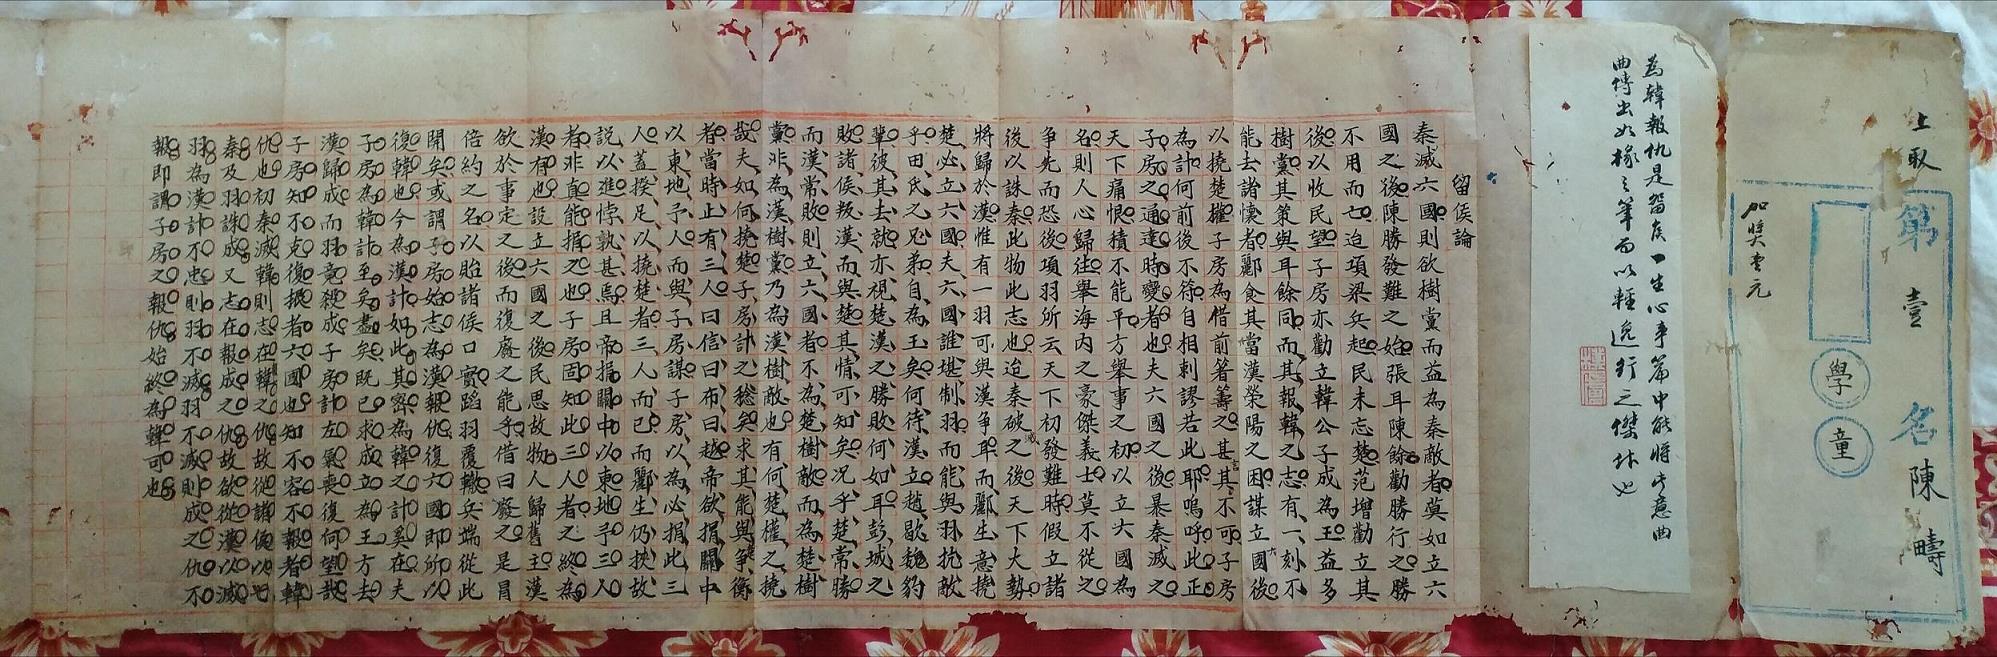 上取
第壹名陳疇
學童
加獎壹元
為韓報仇是留侯一生心事篇中能將此意曲
曲傳出如椽之筆而以輕逸行之傑姏也
留侯論
秦滅六國則欲樹黨而益為秦敵者莫如立六
國之後陳勝發難之始張耳陳餘勸勝行之勝
不用而亡迨項梁兵起民未忘楚范增勸立其
後以收民望子房亦勸立韓公子成為王益多
樹黨其策與耳餘同而其報韓之志有一刻不
能去諸懷者酈食其當漢滎陽之困謀立六國後
以撓楚權子房為借前箸籌之甚言其不可子房
為計何前後不待自相剌謬若此耶嗚呼此正
子房之通達時變者也夫六國之後暴秦滅之
天下痛恨積不能平方舉事之初以立六國為
名則人心歸往舉海內之豪傑義士莫不從之
爭先而恐後項羽所云天下初發難時假立諸
後以誅秦此物此志也迨秦破滅之後天下大勢
將歸於漢惟有一羽可與漢爭耳而酈生意撓
楚必立六國夫六國誰堪制羽而能與羽抗敵
乎田氏之兄弟自為王矣何待漢立趙歇魏豹
輩彼其去就亦視楚漢之勝敗何如耳彭城之
敗諸侯叛漢而與楚其情可知矣况乎楚常勝
而漢常敗則立六國者不為楚樹敵而為楚樹
黨非為漢樹黨乃為漢樹敵也有何楚權之撓
哉夫如何撓楚子房計之稔矣求其能與爭衡
者當時止有三人曰信曰布曰越帝欲捐關中
以東地予人而與子房謀子房以為必捐此三
人蓋揆足以撓楚者三人而已而酈生仍抉故
說以進悖孰甚焉且帝捐關中以東地予三人
者非真能捐之也子房固知此三人者之終為
漢有也設立六國之後民思故物人歸舊主漢
欲於事定之後而復廢之能乎借曰廢之是冒
倍約之名以貽諸侯口實蹈羽覆轍兵端從此
開矣或謂子房始志為漢報仇復六國即所以
復韓也今為漢計如此其密為韓之計奚在夫
子房為韓計至矣盡矣既已求成立為王方去
漢歸成而羽竟殺成子房計左氣喪復何望哉
子房知不克復振者六國也知不容不報者韓
仇也初秦滅韓則志在韓之仇故從諸侯以亡
秦及羽誅成又志在報成之仇故欲從漢以滅
羽為漢計不忠則羽不滅羽不滅則成之仇不
報即謂子房之報仇始終為韓可也